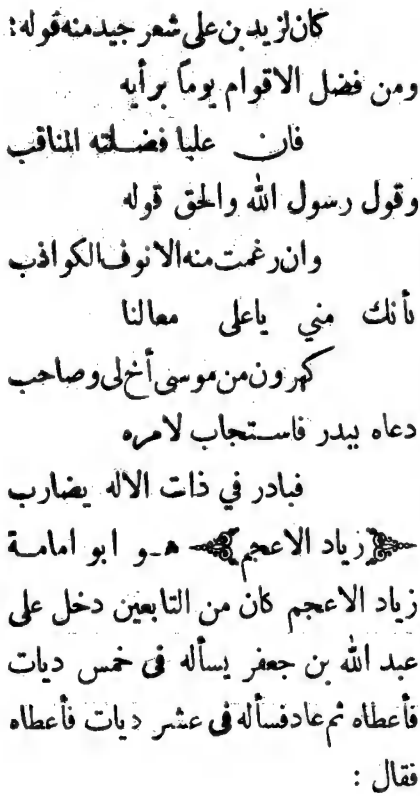 كان لزيد بن علي شعر جيد منه قوله:
ومن فضل الاقوام يوماً برأيه
فان عليا فضلته المناقب
وقول رسول الله والحق قوله
وان رغمت منه الانوف الكواذب
بأنك مني ياعلى معالنا
كهرون من موسى أخ لى وصاحب
دعاه ببدر فاستجاب لامره
فبادر في ذات الاله يضارب
زياد الاعجم هو ابو امامة
زياد الاعجم كان من التابعين دخل على
عبد الله بن جعفر يسأله فى خمس ديات
فأعطاه ثم عاد فسأله فى عشر ديات فأعطاه
فقال :